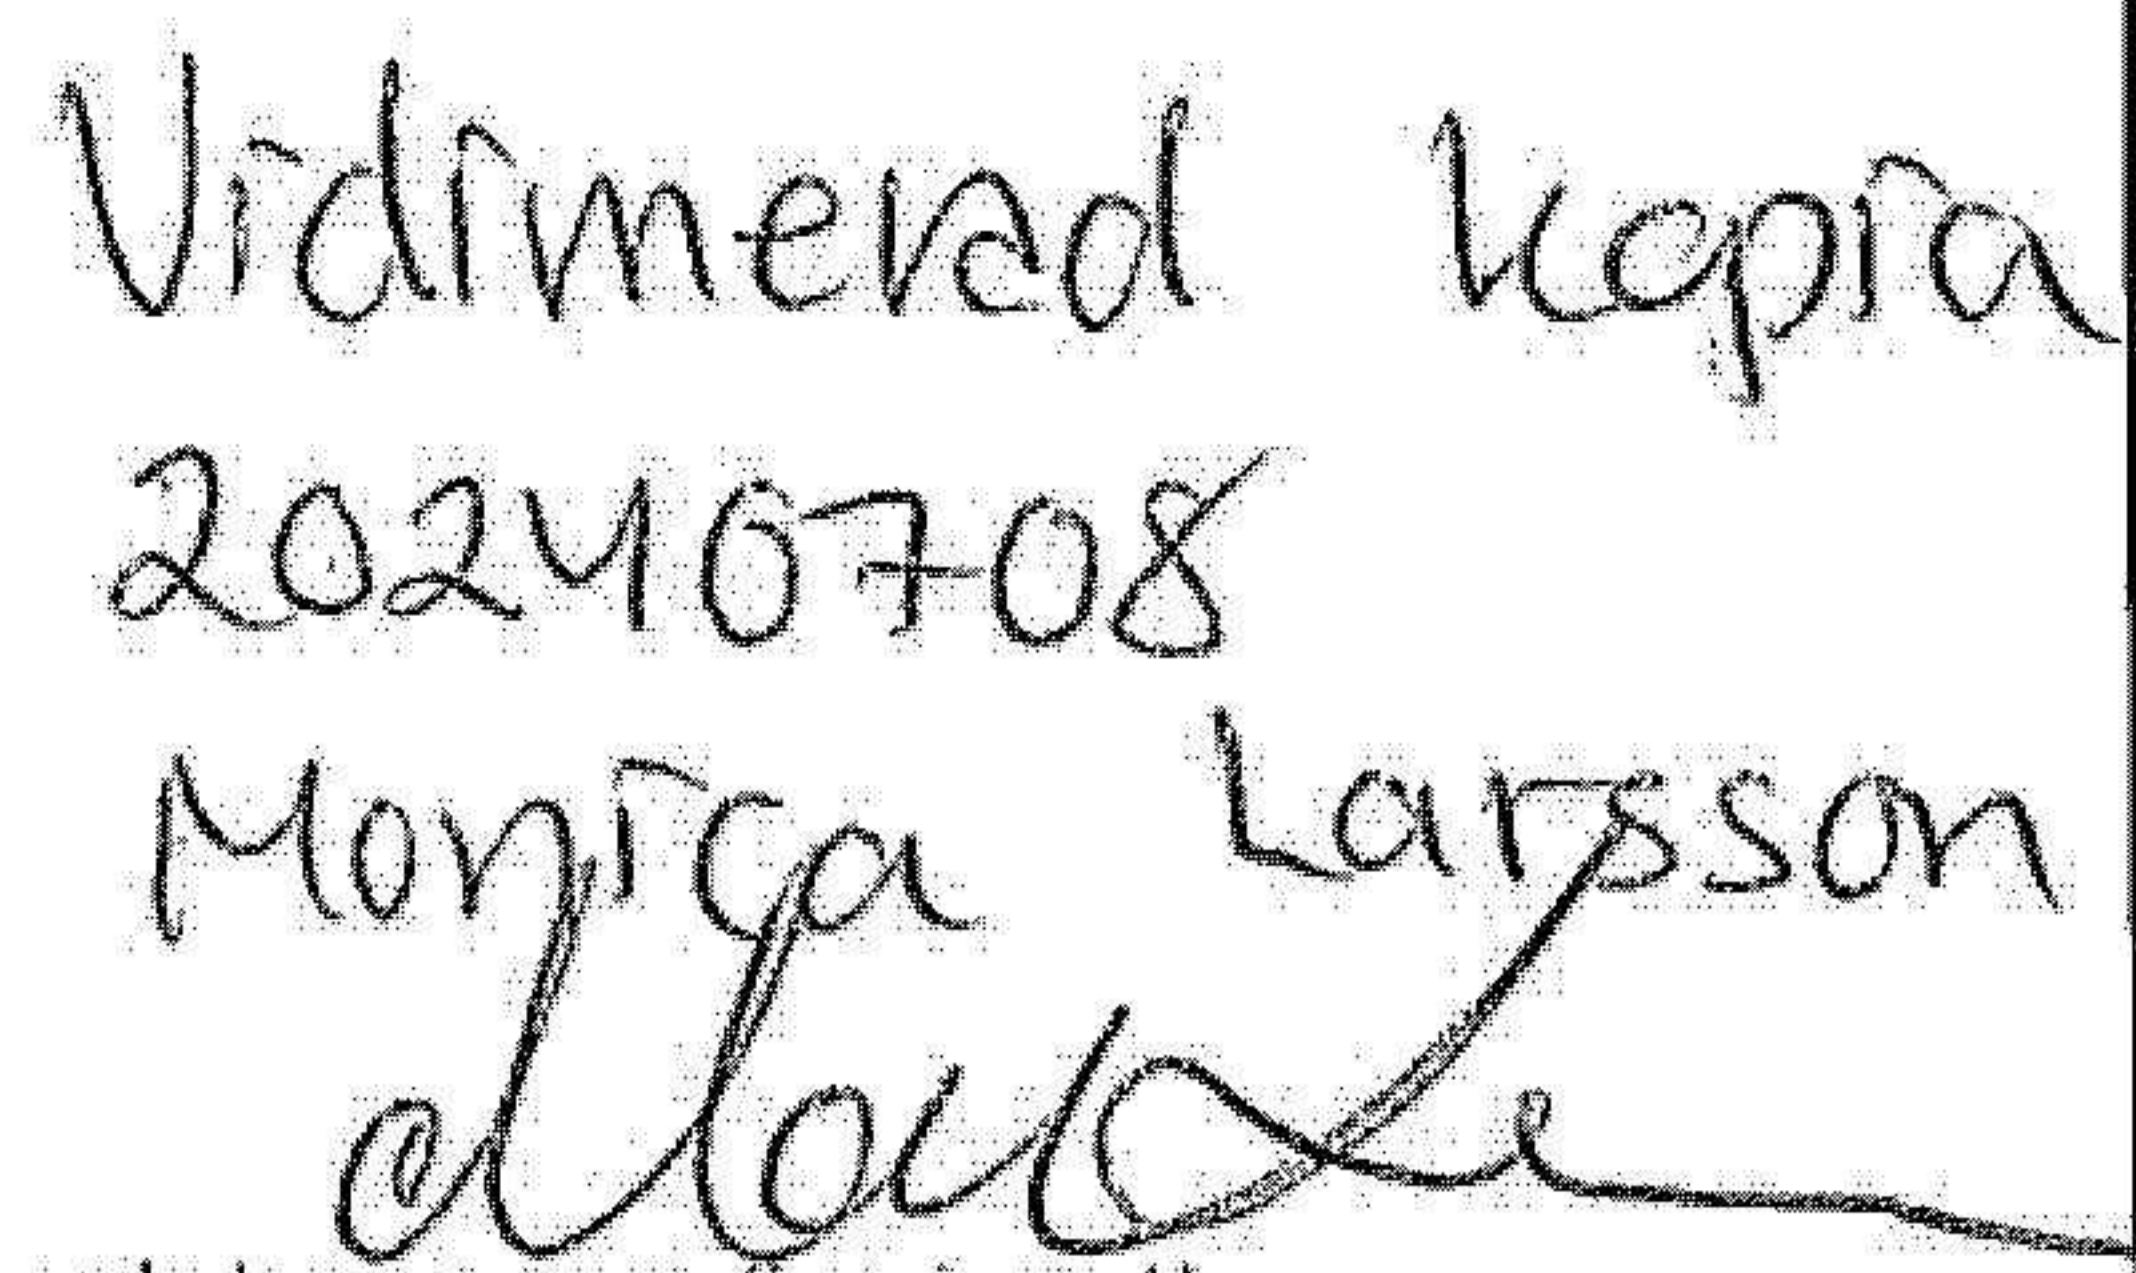 Vidimerad kopia
20240708
Monica Larsson